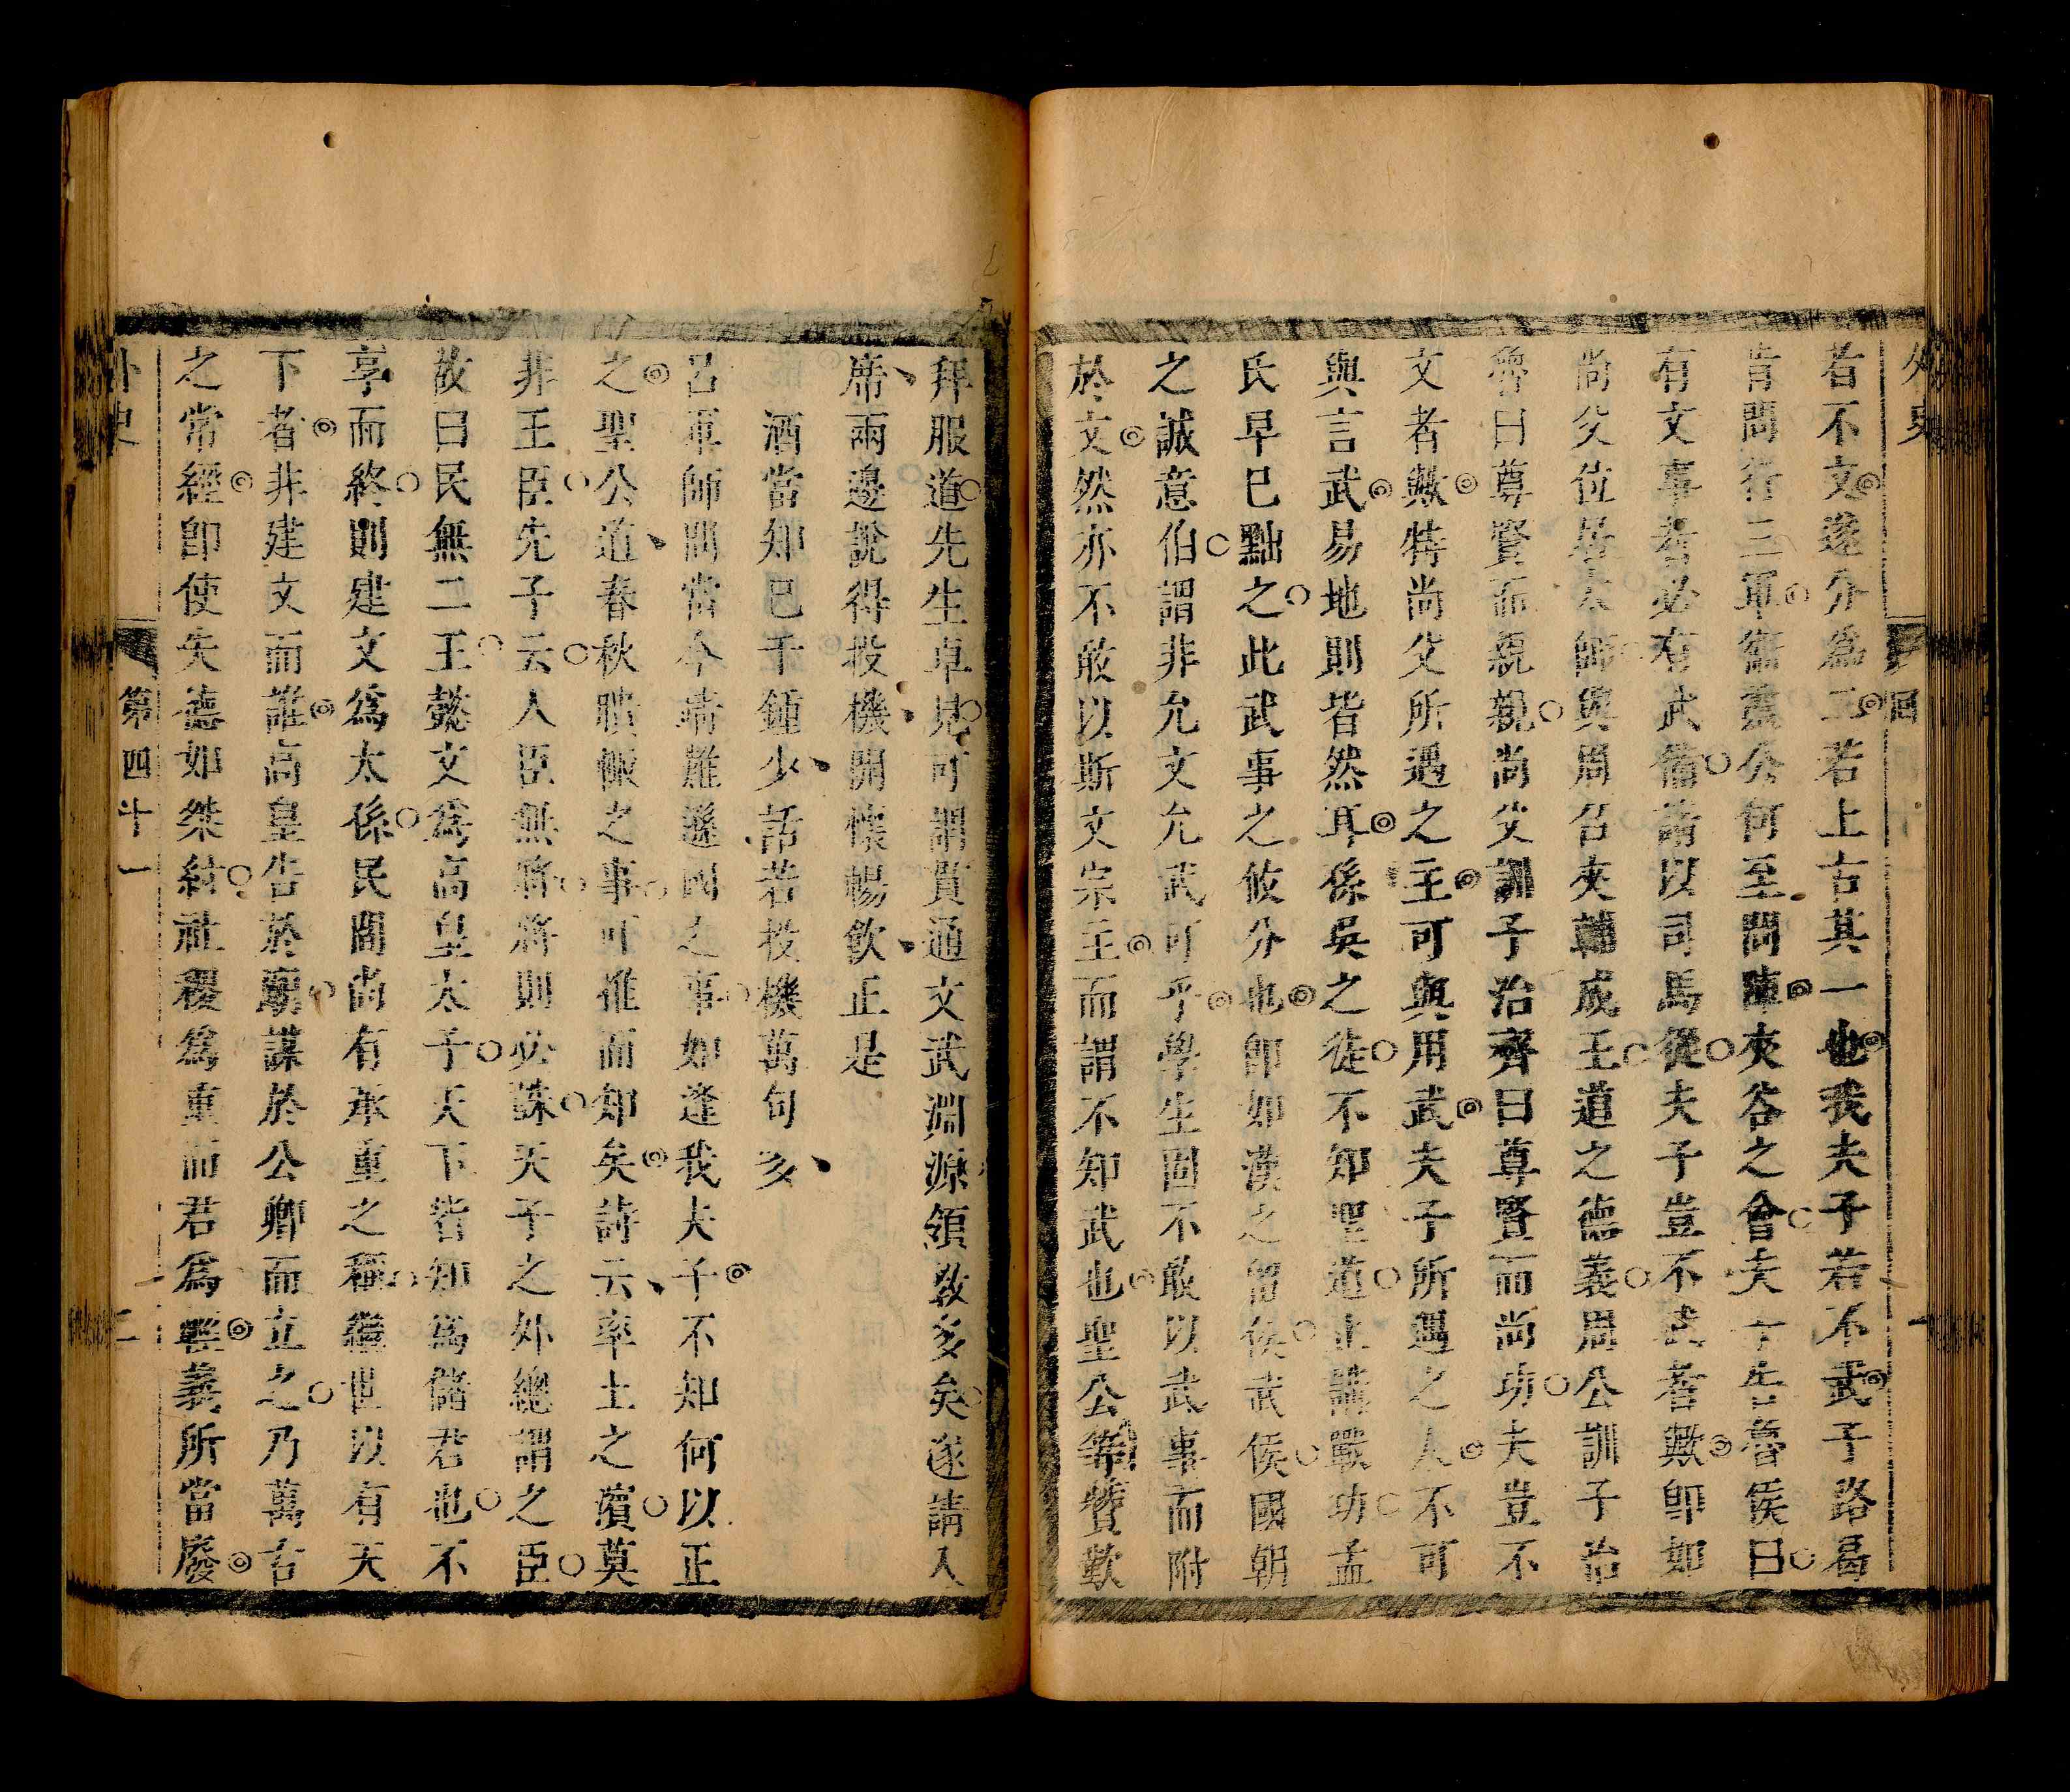 外史
回
若不文遂分爲二若上古其一也我夫子若不武子路曷
肯問行三軍衞靈公何至問陳夾谷之會夫子告魯侯曰
有文事者必有武備請以司馬從夫子豈不武者歟卽如
尚父位居太師與周召夾輔成王道之德義周公訓子治
魯曰尊賢而親親尚父訓子治齊曰尊賢而尚功夫豈不
文者歟特尚父所遇之主可與用武夫子所遇之人不可
與言武易地則皆然耳係吳之徒不知聖道止講戰功孟
氏早已黜之此武事之攸分也卽如漢之留侯武侯國朝
之誠意伯謂非允文允武可乎學生固不敢以武事而附
於文然亦不敢以斯文宗主而謂不知武也聖公等贊歎
拜服道先生卓見可謂貫通文武淵源領敎多矣遂請入
席兩邊說得投機開懷暢飲正是
酒當知已千鍾少話若投機萬句多
呂軍師問當今靖難遜國之事如逢我夫子不知何以正
之聖公道春秋聵輒之事可推而知矣詩云率土之濱莫
非王臣先子云人臣無將將則必誅天子之外總謂之臣
故曰民無二王懿文爲高皇太子天下皆知爲儲君也不
享而終則建文爲太係民間尚有承重之稱繼世以有天
下者非建文而誰高皇告於廟謀於公卿而立之乃萬古
之常經卽使失德如桀紂社稷爲重而君爲輕義所當廢
外史
第四十一
二